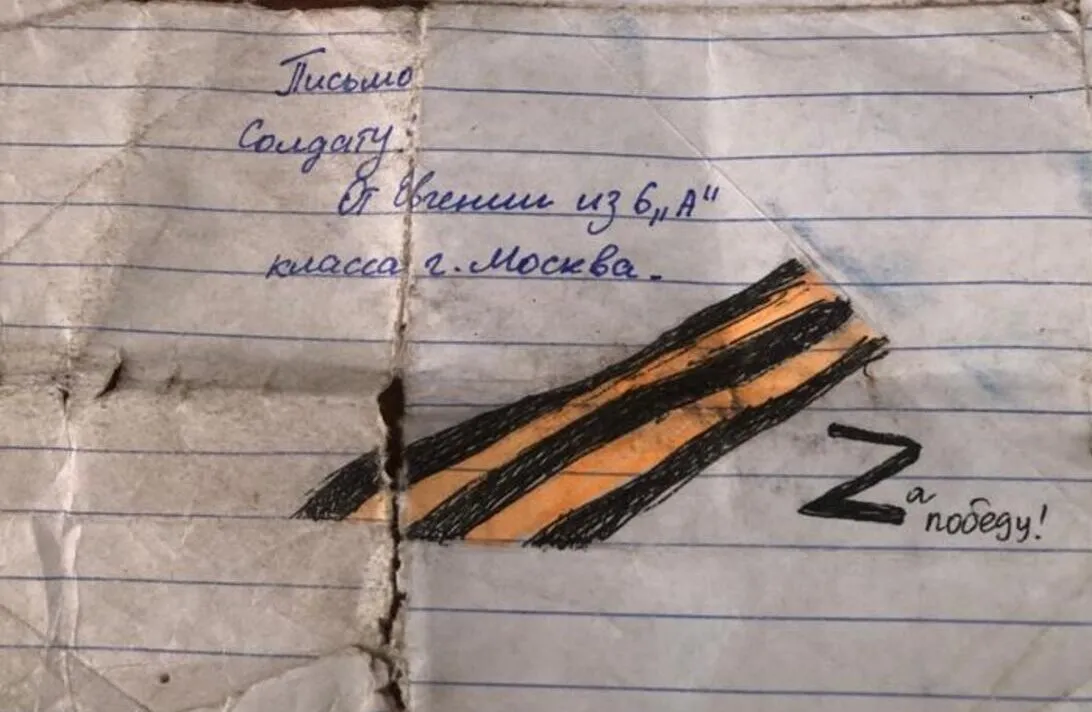 Письмо
Солдату.
От Евгении из 6 „А"
класса г. Москва.
Zа победу!